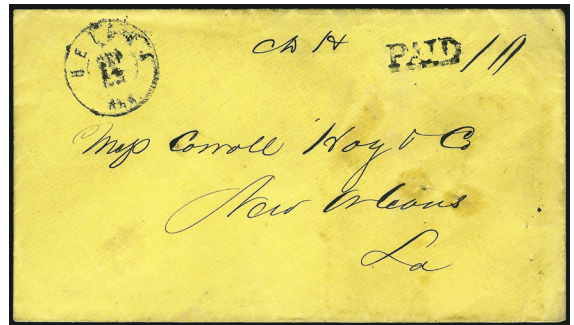 HELENA
ARK.
Ch 14
PAID 10
Mess Carroll Hoy & Co
New Orleans
La